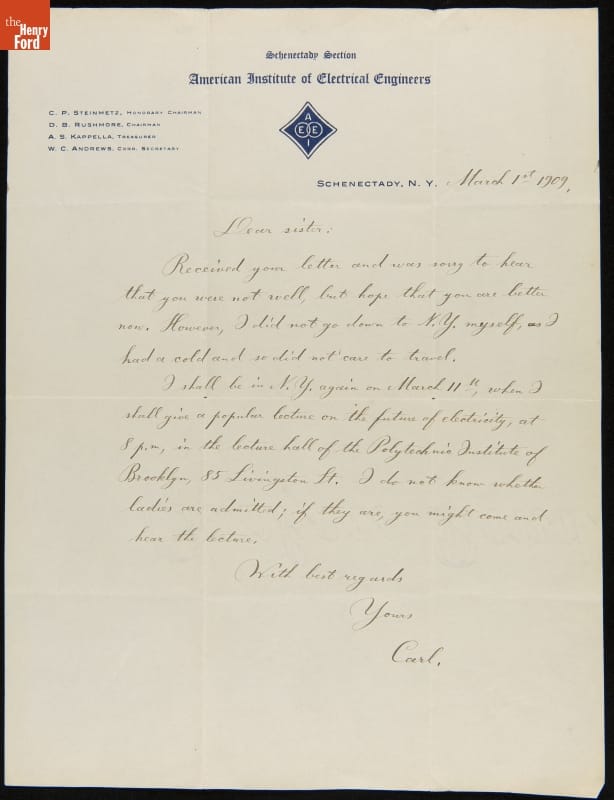 the
Henry
Ford
Schenectady Section
American Institute of Electrical Engineers
C. P. STEINMETZ, HONORARY CHAIRMAN
D. B. RUSHMORE, CHAIRMAN
A. S. KAPPELLA, TREASURER
W. C. ANDREWS, CORR. SECRETARY
A
E E
I
SCHENECTADY, N. Y. March 1st 1909.
Dear sister:
Received your letter and was sorry to hear
that you were not well, but hope that you are better
now. However, I did not go down to N.Y. myself, as I
had a cold and so did not care to travel.
I shall be in N.Y. again on March 11th, when I
shall give a popular lecture on the future of electricity, at
8 p.m, in the lecture hall of the Polytechnic Institute of
Brooklyn, 85 Livingston St. I do not know whether
ladies are admitted; if they are, you might come and
hear the lecture.
With best regards
Yours
Carl.